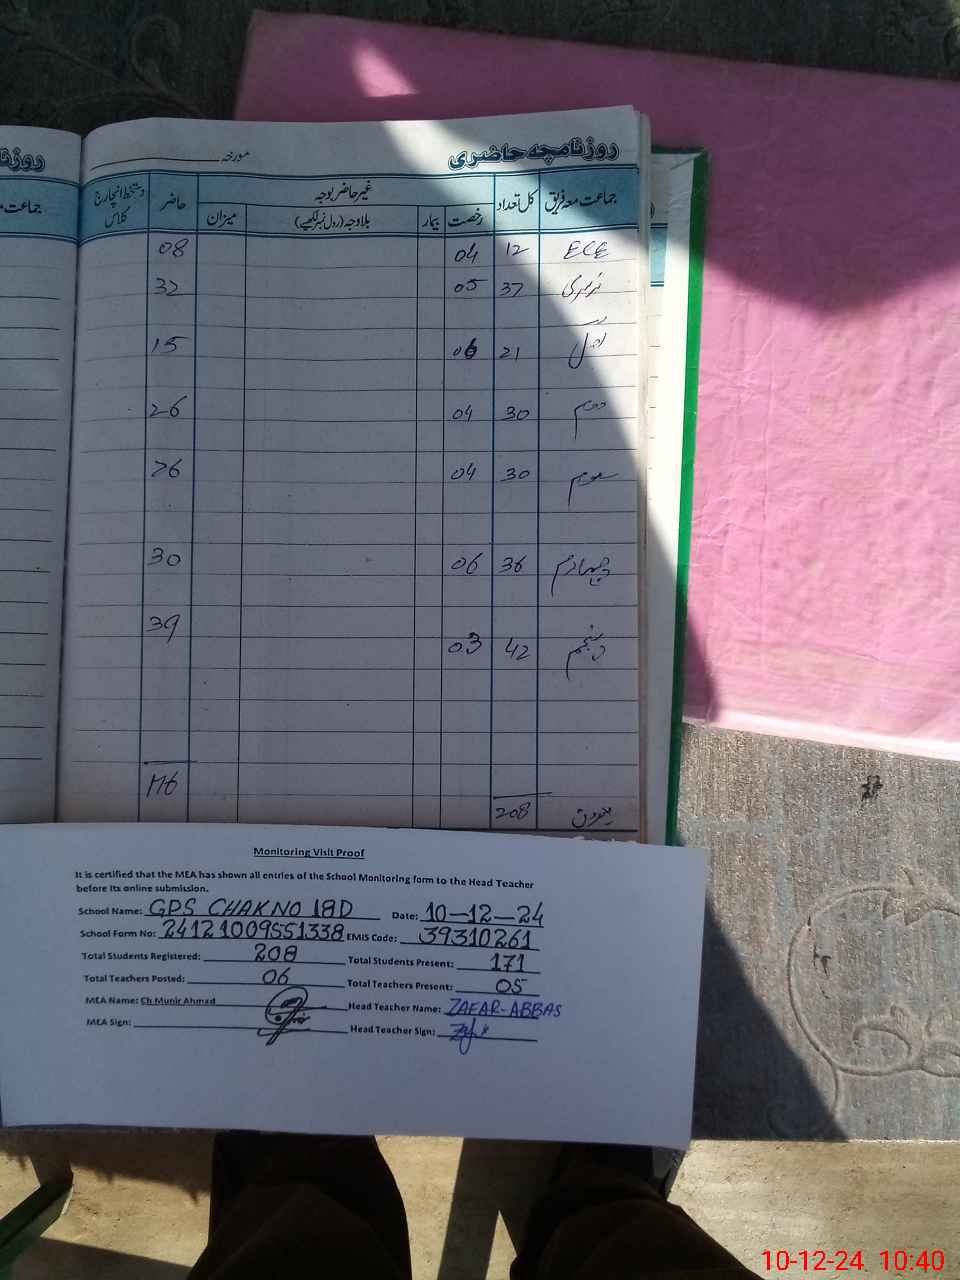 روزنامچہ حاضری مورخہ
جماعت معہ فریق کل تعداد غیر حاضر بوجہ حاضر دستخط انچارج کلاس
رخصت بیمار بلاوجہ (رول نمبر لکھیے) میزان
ECE 12 04 08
نرسری 37 05 32
اول 21 06 15
دوم 30 04 26
سوم 30 04 26
چہارم 36 06 30
پنجم 42 03 39
208 176
روزنا
جماعت م
Monitoring Visit Proof
It is certified that the MEA has shown all entries of the School Monitoring form to the Head Teacher
before its online submission.
School Name: GPS CHAK NO 18D Date: 10-12-24
School Form No: 24121009551338 EMIS Code: 39310261
Total Students Registered: 208 Total Students Present: 171
Total Teachers Posted: 06 Total Teachers Present: 05
MEA Name: Ch Munir Ahmad Head Teacher Name: ZAFAR-ABBAS
MEA Sign: Head Teacher Sign:
10-12-24 10:40